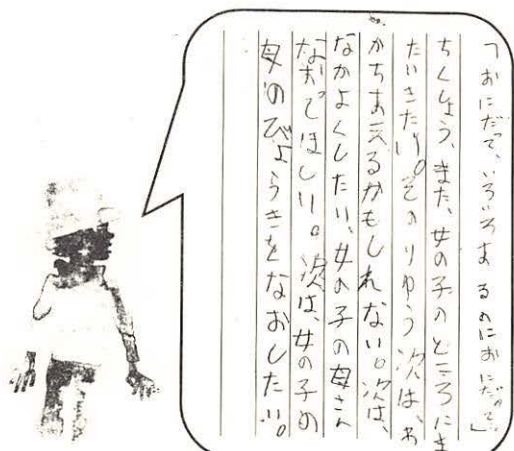 「おにだって、いろいろあるのにおにだって。」
ちくしょう、また、女の子のところにま
たいきたい。そのりゆう次は、わ
かちあえるかもしれない。次は、
なかよくしたい、女の子の母さん
なおってほしい。次は、女の子の
母のびょうきをなおしたい。